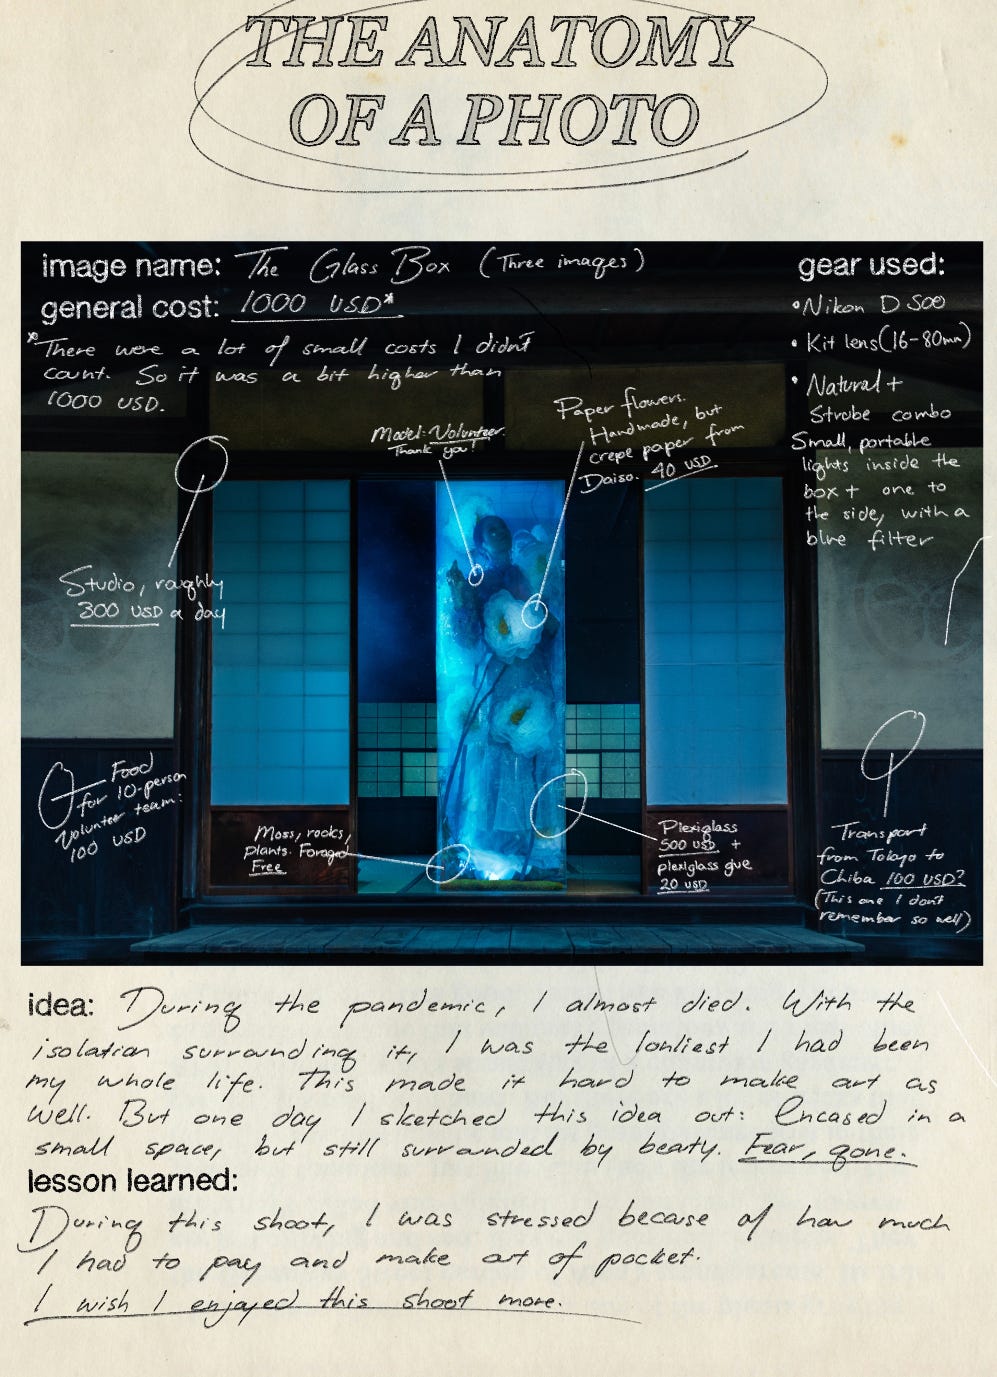 THE ANATOMY
OF A PHOTO
image name: The Glass Box (Three images)
general cost: 1000 USD*
*There were a lot of small costs I didn't
count. So it was a bit higher than
1000 USD.
gear used:
•Nikon D500
• Kit lens (16-80mm)
• Natural +
Strobe combo
Small, portable
lights inside the
box + one to
the side, with a
blue filter
Model: Volunteer.
Thank you!
Paper flowers.
Handmade, but
crepe paper from
Daiso. 40 USD
Studio, roughly
300 USD a day
Food
for 10-person
Volunteer team:
100 USD
Moss, rocks,
plants. Foraged
Free
Plexiglass
500 USD +
plexiglass glue
20 USD
Transport
from Tokyo to
Chiba 100 USD?
(This one I don't
remember so well)
idea: During the pandemic, I almost died. With the
isolation surrounding it, I was the lonliest I had been
my whole life. This made it hard to make art as
well. But one day I sketched this idea out: Encased in a
small space, but still surrounded by beaty. Fear, gone.
lesson learned:
During this shoot, I was stressed because of how much
I had to pay and make out of pocket.
I wish I enjoyed this shoot more.